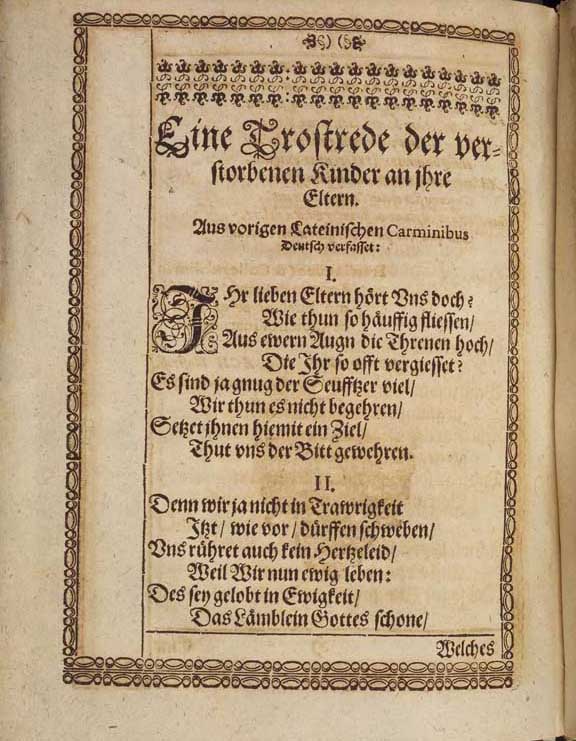 Eine Trostrede der ver-
storbenen Kinder an jhre
Eltern.
Aus vorigen Lateinischen Carminibus
Deutsch verfasset:
I.
IHr lieben Eltern hört Vns doch?
Wie thun so häuffig fliessen/
Aus ewern Augn die Threnen hoch/
Die Ihr so offt vergiesset?
Es sind ja gnug der Seufftzer viel/
Wir thun es nicht begehren/
Setzet jhnen hiemit ein Ziel/
Thut vns der Bitt gewehren.
II.
Denn wir ja nicht in Trawrigkeit
Jtzt/ wie vor/ dürffen schweben/
Vns rühret auch kein Hertzeleid/
Weil Wir nun ewig leben:
Des sey gelobt in Ewigkeit/
Das Lämblein Gottes schone/
Welches